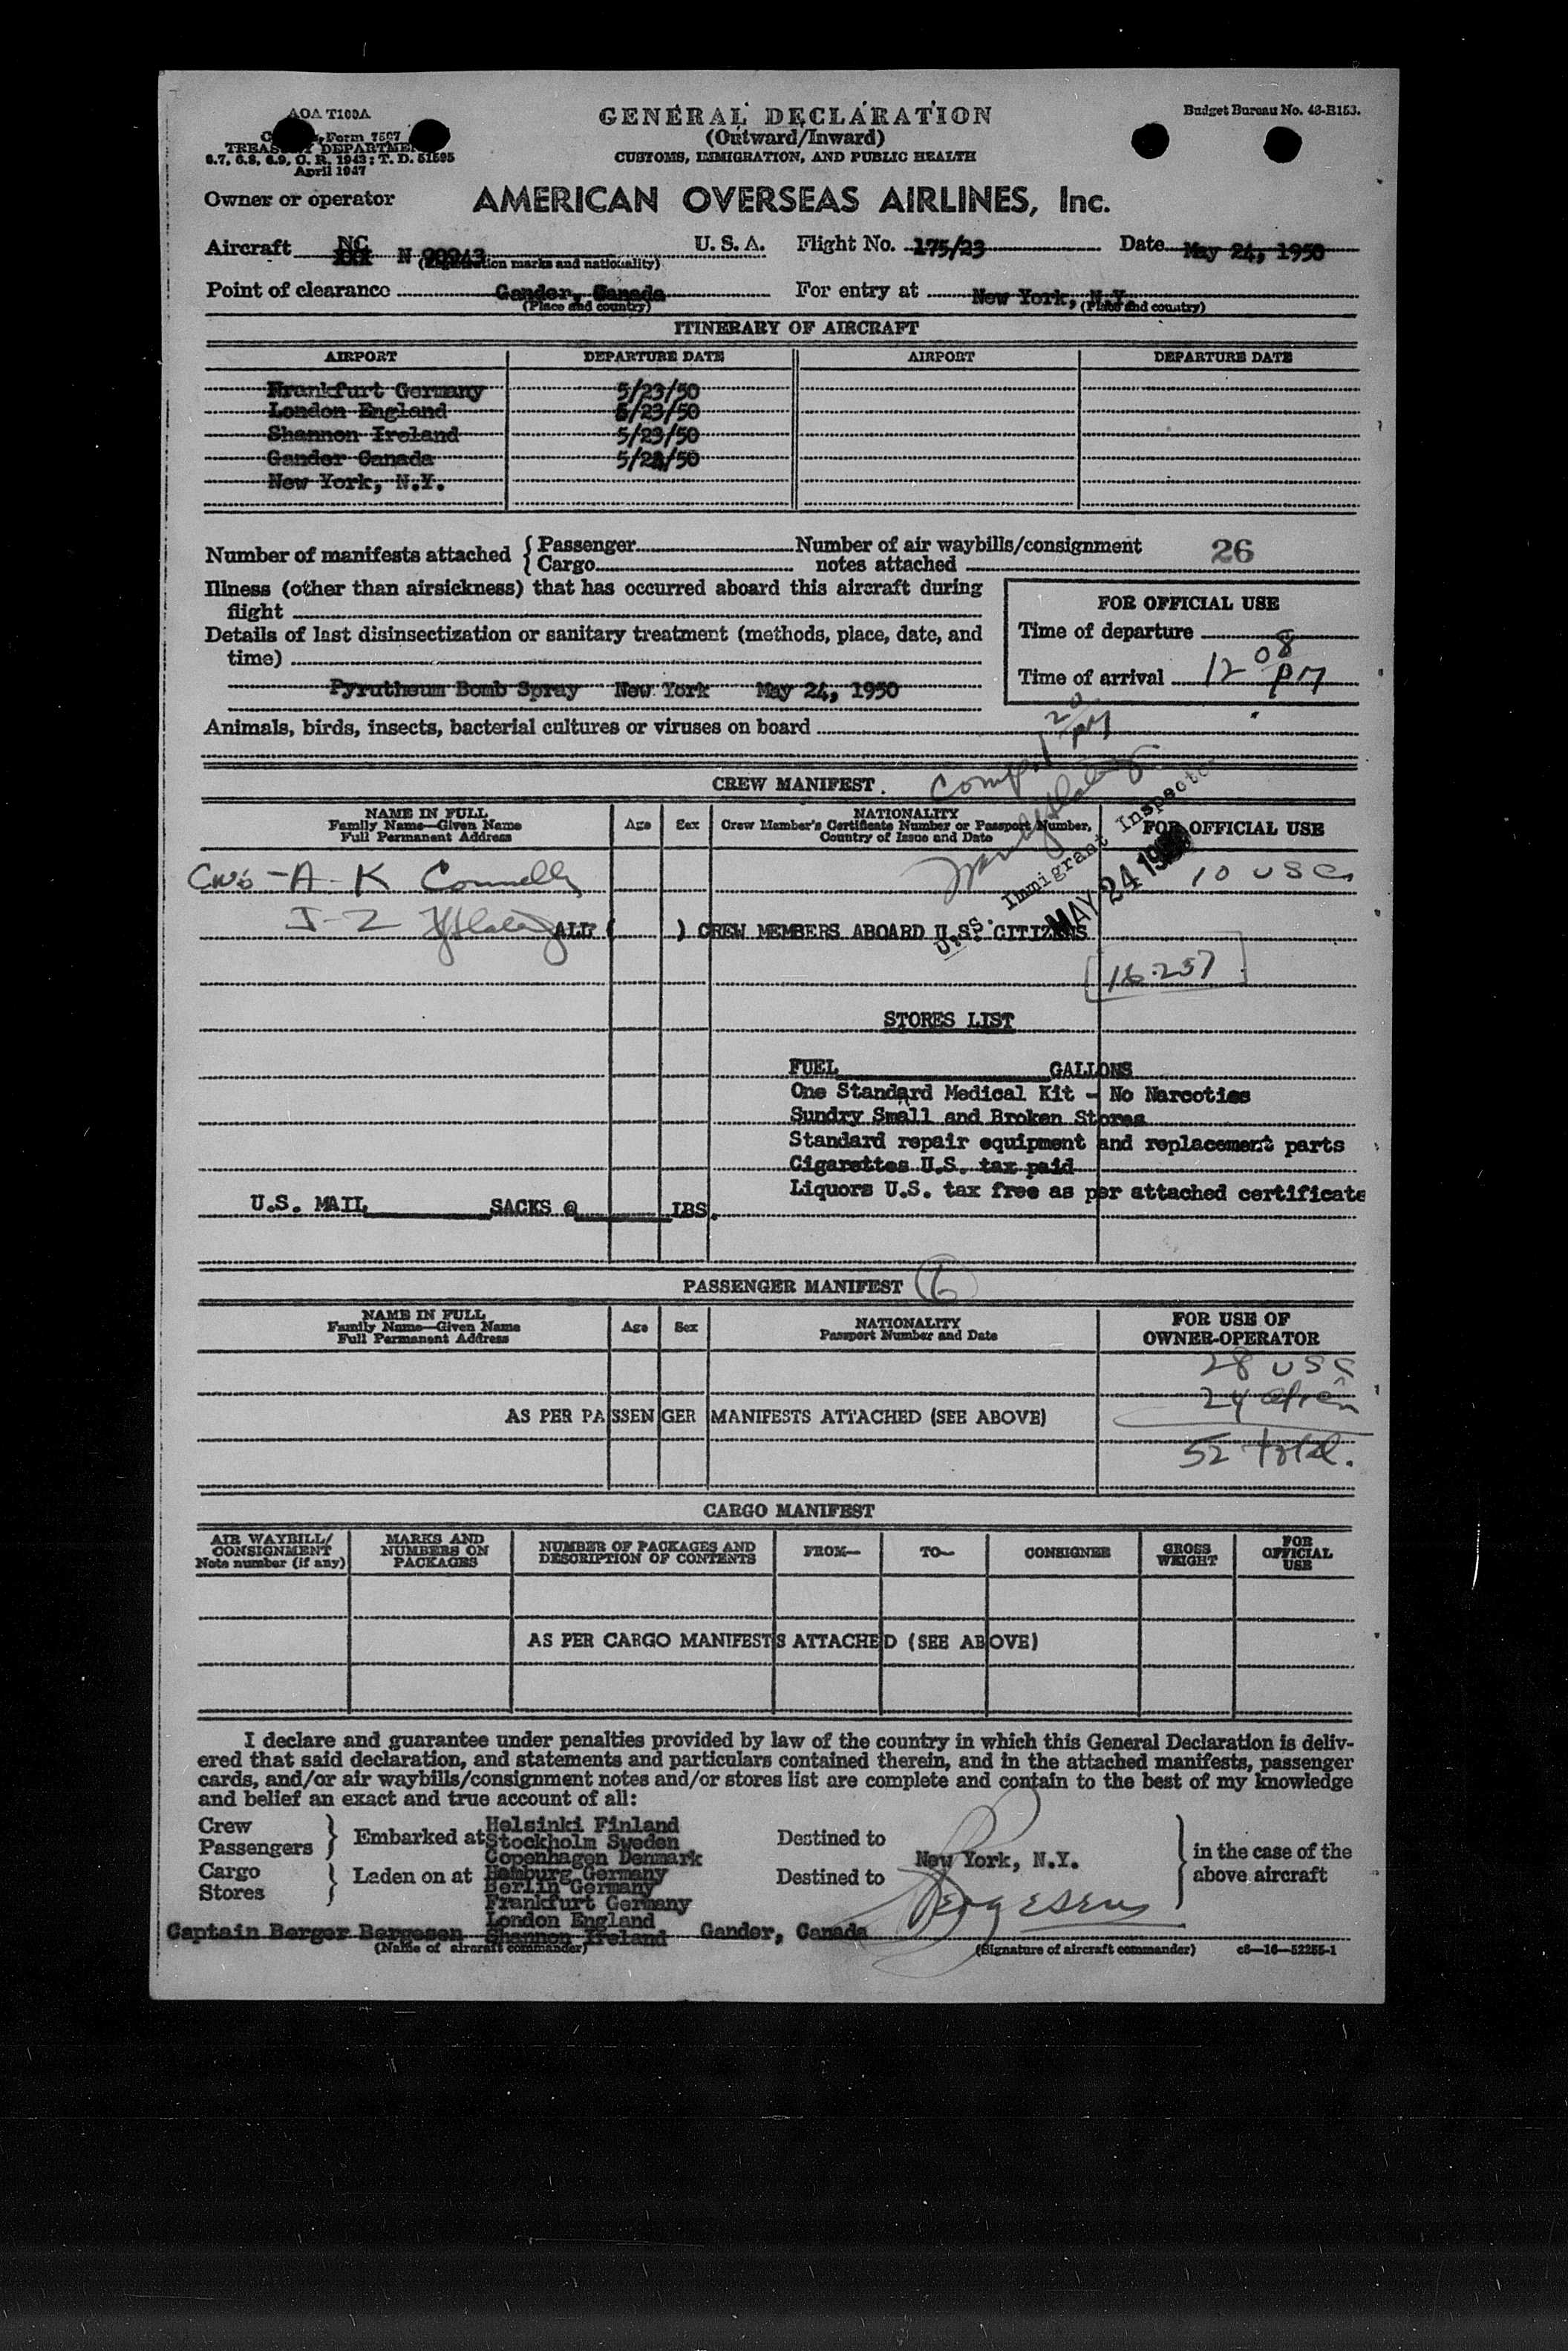 AOA T100A
Form 7507
TREASURY DEPARTMENT
6.7, 6.8, 6.9, C. R. 1943; T. D. 51595
April 1947
GENERAL DECLARATION
(Outward/Inward)
CUSTOMS, IMMIGRATION, AND PUBLIC HEALTH
Budget Bureau No. 48-R153.
Owner or operator AMERICAN OVERSEAS AIRLINES, Inc.
Aircraft NC N 90943 U. S. A. Flight No. 175/23 Date May 24, 1950
(Registration marks and nationality)
Point of clearance Gander, Canada For entry at New York, N.Y.
(Place and country) (Place and country)
ITINERARY OF AIRCRAFT
AIRPORT DEPARTURE DATE AIRPORT DEPARTURE DATE
Frankfurt Germany 5/23/50
London England 5/23/50
Shannon Ireland 5/23/50
Gander Canada 5/24/50
New York, N.Y.
Number of manifests attached { Passenger Number of air waybills/consignment 26
Cargo notes attached
Illness (other than airsickness) that has occurred aboard this aircraft during
flight
FOR OFFICIAL USE
Details of last disinsectization or sanitary treatment (methods, place, date, and
time)
Time of departure
Time of arrival 12 08 PM
Pyrutheum Bomb Spray New York May 24, 1950
Animals, birds, insects, bacterial cultures or viruses on board
1 20 PM
CREW MANIFEST. Comp.
NAME IN FULL
Family Name—Given Name
Full Permanent Address
Age Sex
NATIONALITY
Crew Member's Certificate Number or Passport Number,
Country of Issue and Date
FOR OFFICIAL USE
U.S. Immigrant Inspector
MAY 24 1950
A-K Connelly 10 USC
I-2
ALL ( ) CREW MEMBERS ABOARD U.S. CITIZENS
[16-257]
STORES LIST
FUEL GALLONS
One Standard Medical Kit - No Narcotics
Sundry Small and Broken Stores
Standard repair equipment and replacement parts
Cigarettes U.S. tax paid
Liquors U.S. tax free as per attached certificate
U.S. MAIL SACKS @ LBS.
PASSENGER MANIFEST 6
NAME IN FULL
Family Name—Given Name
Full Permanent Address
Age Sex
NATIONALITY
Passport Number and Date
FOR USE OF
OWNER-OPERATOR
28 USC
24 alien
AS PER PASSENGER MANIFESTS ATTACHED (SEE ABOVE)
52 total.
CARGO MANIFEST
AIR WAYBILL/
CONSIGNMENT
Note number (if any)
MARKS AND
NUMBERS ON
PACKAGES
NUMBER OF PACKAGES AND
DESCRIPTION OF CONTENTS
FROM— TO— CONSIGNEE
GROSS
WEIGHT
FOR
OFFICIAL
USE
AS PER CARGO MANIFESTS ATTACHED (SEE ABOVE)
I declare and guarantee under penalties provided by law of the country in which this General Declaration is deliv-
ered that said declaration, and statements and particulars contained therein, and in the attached manifests, passenger
cards, and/or air waybills/consignment notes and/or stores list are complete and contain to the best of my knowledge
and belief an exact and true account of all:
Crew
Passengers } Embarked at
Cargo
Stores } Laden on at
Helsinki Finland
Stockholm Sweden
Copenhagen Denmark
Hamburg Germany
Berlin Germany
Frankfurt Germany
London England
Shannon Ireland
Destined to
New York, N.Y.
Destined to
in the case of the
above aircraft
Bergesen
Captain Berger Bergesen Gander, Canada
(Name of aircraft commander) (Signature of aircraft commander) c6—16—52255-1